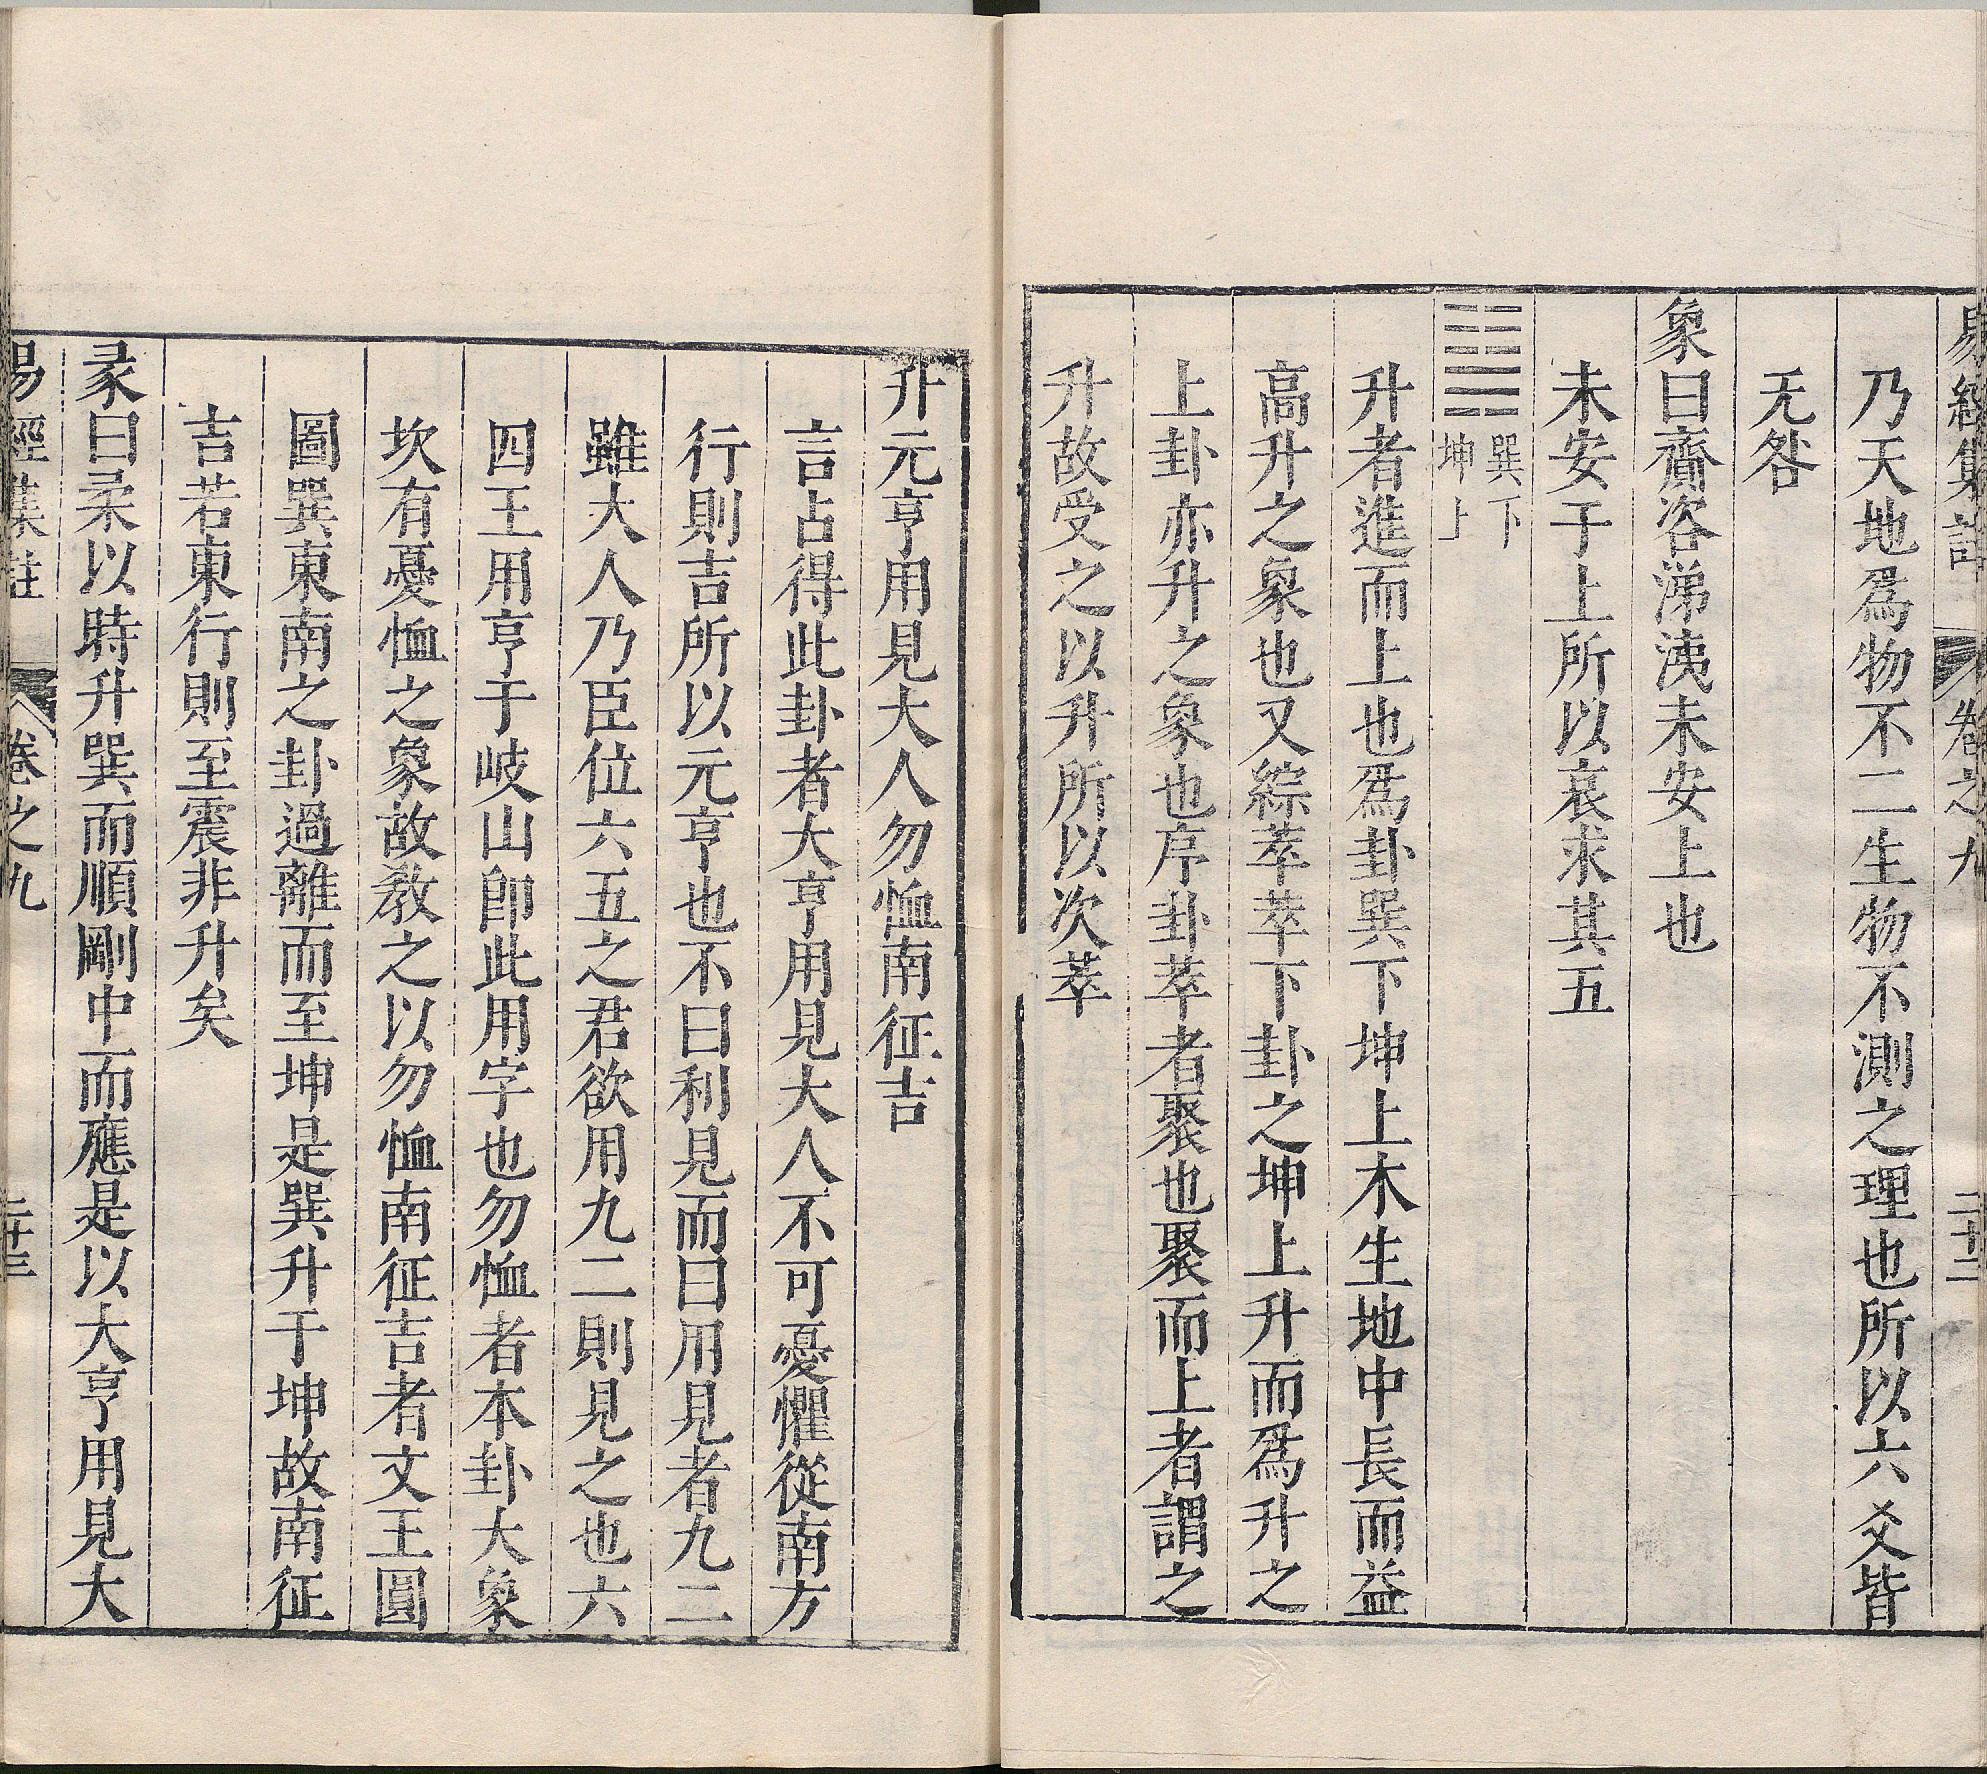 易經集註 卷之九 二十二
乃天地爲物不二生物不測之理也所以六爻皆
无咎
象曰齎咨涕洟未安上也
未安于上所以哀求其五
巽下
坤上
升者進而上也爲卦巽下坤上木生地中長而益
高升之象也又綜萃萃下卦之坤上升而爲升之
上卦亦升之象也序卦萃者聚也聚而上者謂之
升故受之以升所以次萃
升元亨用見大人勿恤南征吉
言占得此卦者大亨用見大人不可憂懼從南方
行則吉所以元亨也不曰利見而曰用見者九二
雖大人乃臣位六五之君欲用九二則見之也六
四王用亨于岐山卽此用字也勿恤者本卦大象
坎有憂恤之象故教之以勿恤南征吉者文王圓
圖巽東南之卦過離而至坤是巽升于坤故南征
吉若東行則至震非升矣
彖曰柔以時升巽而順剛中而應是以大亨用見大
易經集註 卷之九 二十三